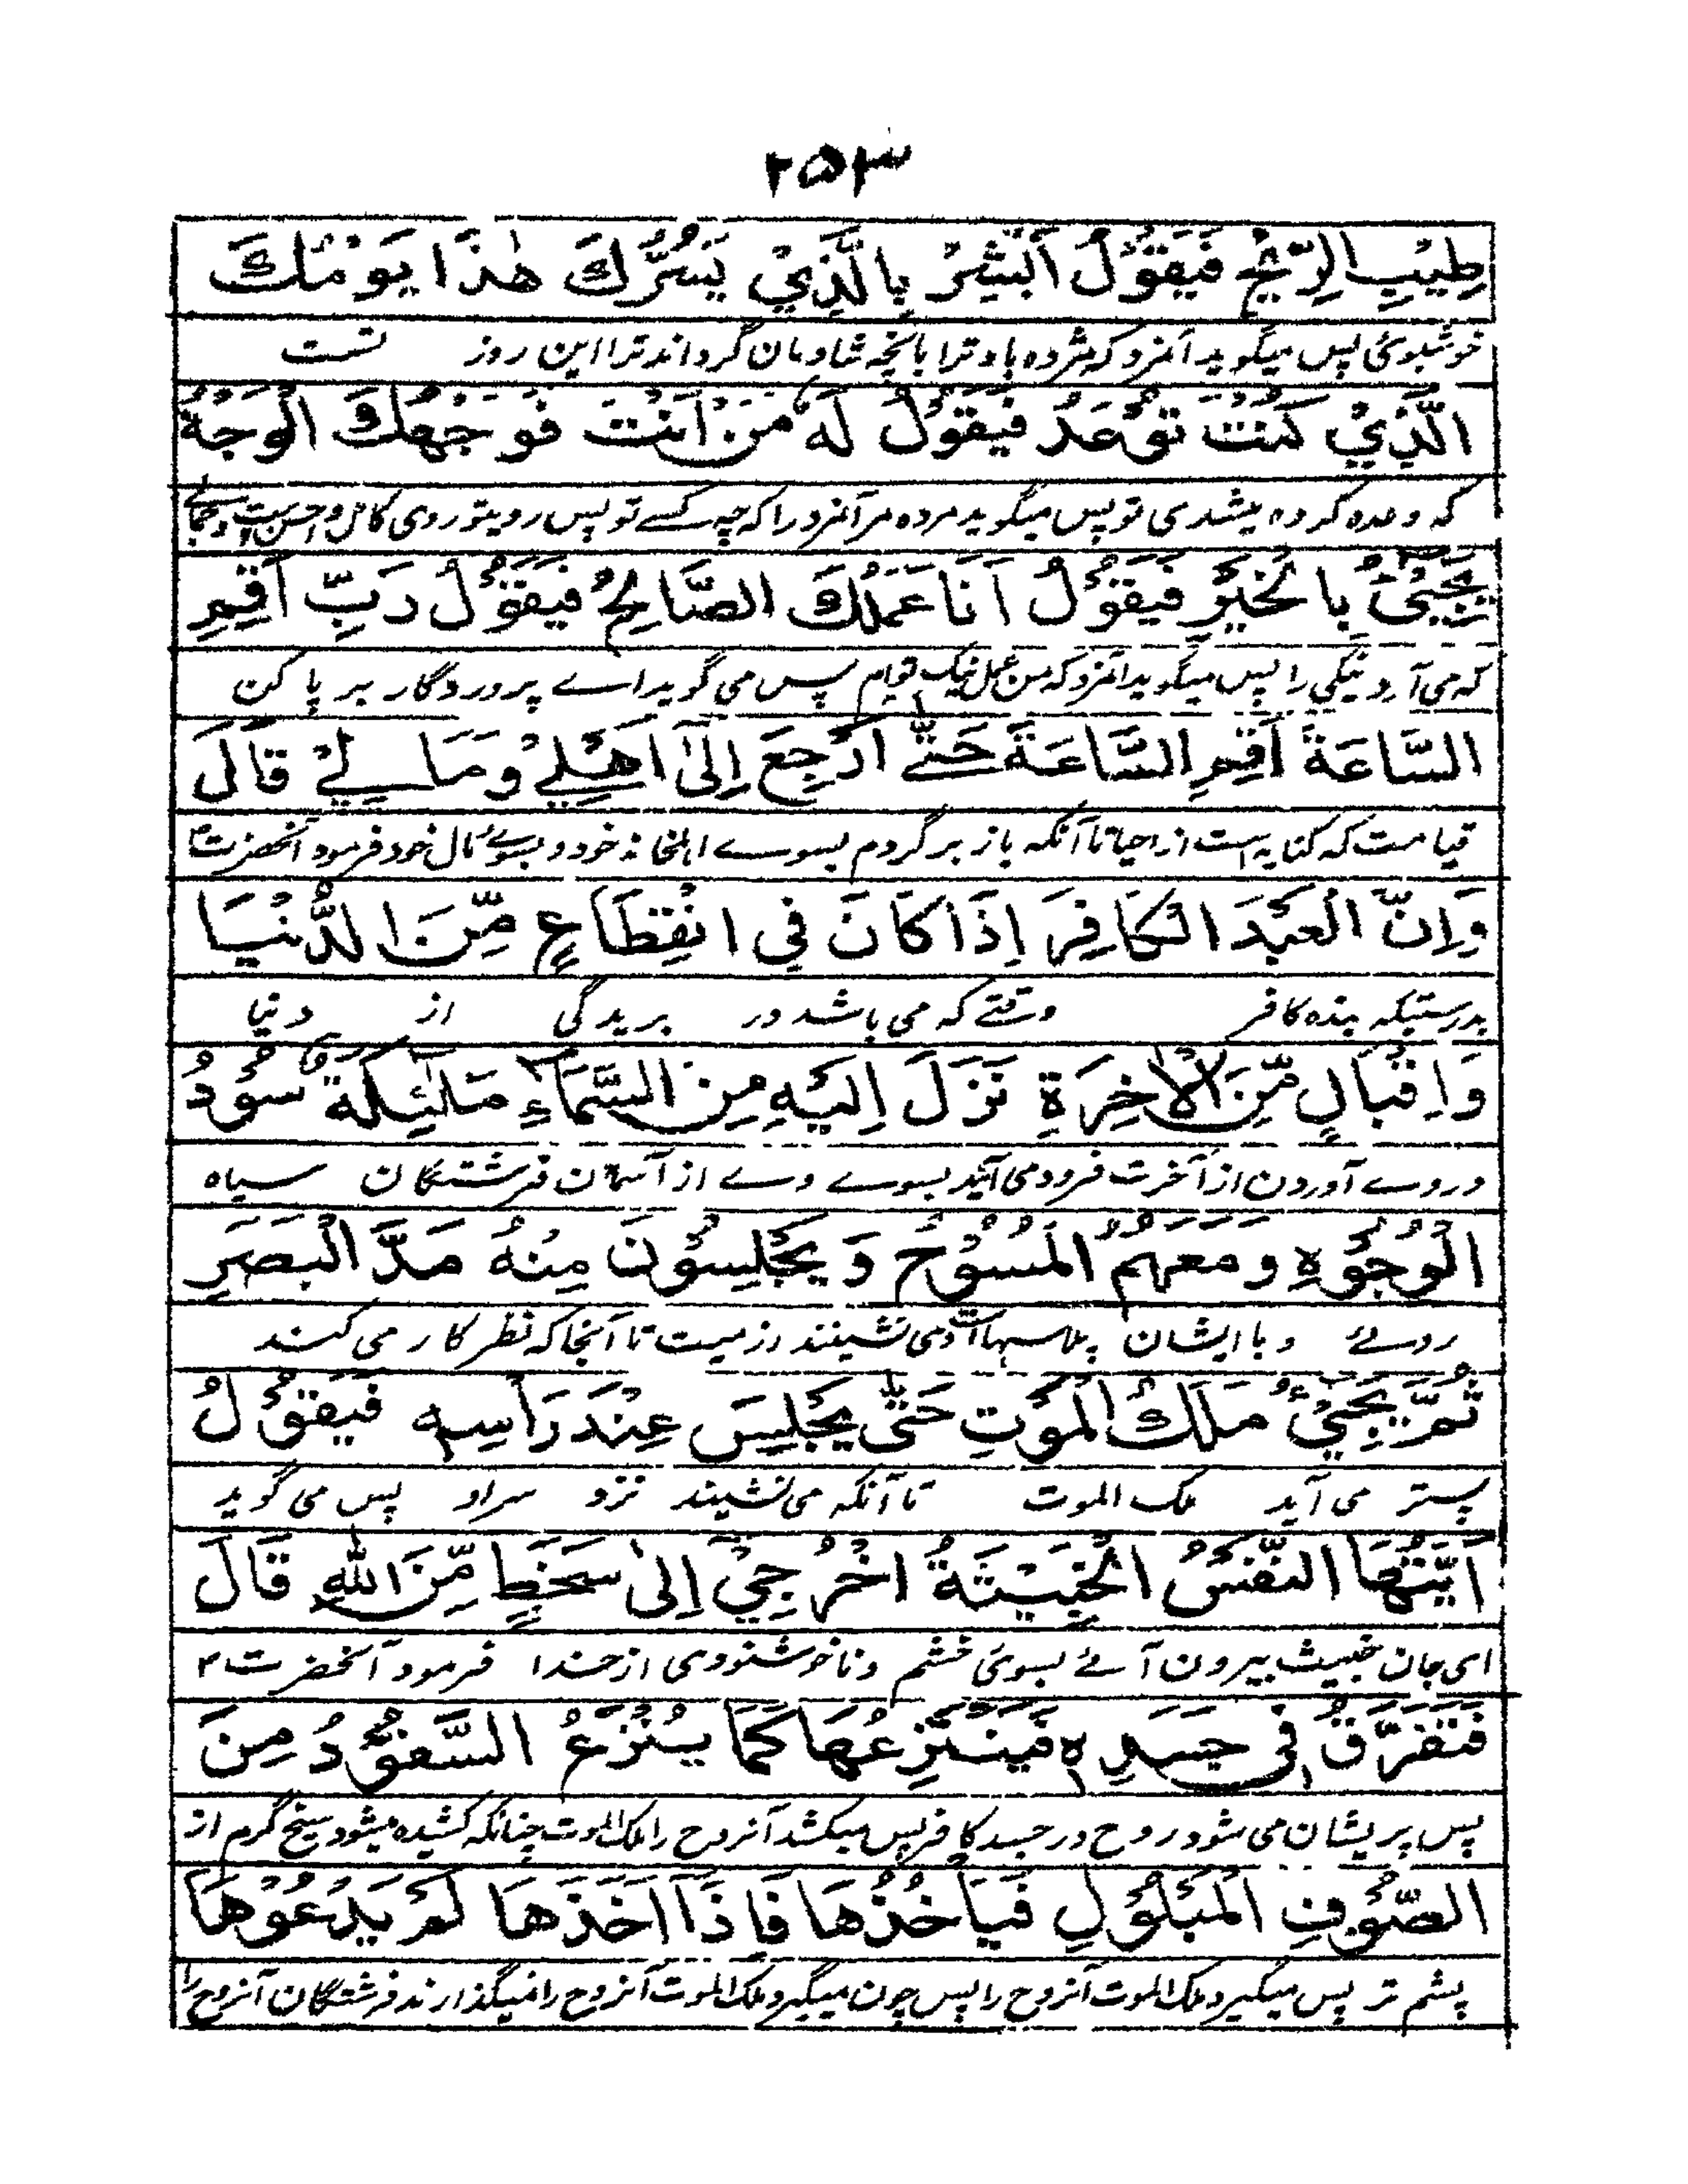 ۲۵۳
طِيْبِ الرِّيْحِ فَيَقُوْلُ اَبْشِرْ بِالَّذِيْ يَسُرُّكَ هٰذَا يَوْمُكَ
خوشبوئی پس میگوید آنمرد که مژده باد ترا بانچه شادمان گرداند ترا این روز تست
الَّذِيْ كُنْتَ تُوْعَدُ فَيَقُوْلُ لَهٗ مَنْ اَنْتَ فَوَجْهُكَ الْوَجْهُ
که وعده کرده میشدی تو پس میگوید مرده مر آنمرد را که چه کسے تو پس روی تو روی کامل و احسن ست
يَجِيْئُ بِالْخَيْرِ فَيَقُوْلُ اَنَا عَمَلُكَ الصَّالِحُ فَيَقُوْلُ رَبِّ اَقِمِ
که می آرد نیکی را پس میگوید آنمرد که من عمل نیک توام پس می گوید اے پروردگار بر پا کن
السَّاعَةَ اَقِمِ السَّاعَةَ حَتّٰى اَرْجِعَ اِلٰى اَهْلِيْ وَمَالِيْ قَالَ
قیامت که کنایه است از احیا تا آنکه باز برگردم بسوے اهلخانهٔ خود و بسوئے مال خود فرمود آنحضرت
وَاِنَّ الْعَبْدَ الْكَافِرَ اِذَا كَانَ فِي انْقِطَاعٍ مِّنَ الدُّنْيَا
بدرستیکه بنده کافر وقتے که می باشد در بریدگی از دنیا
وَاِقْبَالٍ مِّنَ الْاٰخِرَةِ نَزَلَ اِلَيْهِ مِنَ السَّمَآءِ مَلٰٓئِكَةٌ سُوْدُ
و روے آوردن از آخرت فرود می آیند بسوے وے از آسمان فرشتگان سیاه
الْوُجُوْهِ وَمَعَهُمُ الْمُسُوْحُ وَ يَجْلِسُوْنَ مِنْهُ مَدَّ الْبَصَرِ
روے و با ایشان پلاسها است و می نشینند از میت تا آنجا که نظر کار می کند
ثُمَّ يَجِيْئُ مَلَكُ الْمَوْتِ حَتّٰى يَجْلِسَ عِنْدَ رَاْسِهٖ فَيَقُوْلُ
پستر می آید ملک الموت تا آنکه می نشیند نزد سر او پس می گوید
اَيَّتُهَا النَّفْسُ الْخَبِيْثَةُ اخْرُجِيْ اِلٰى سَخَطٍ مِّنَ اللّٰهِ قَالَ
ای جان خبیث بیرون آئے بسوی خشم و ناخوشنودی از خدا فرمود آنحضرت
فَتَفَرَّقُ فِيْ جَسَدِهٖ فَيَنْتَزِعُهَا كَمَا يُنْزَعُ السَّفُّوْدُ مِنَ
پس پریشان می شود روح در جسد کافر پس میکشد آنروح را ملک الموت چنانکه کشیده میشود سیخ گرم از
الصُّوْفِ الْمَبْلُوْلِ فَيَاْخُذُهَا فَاِذَا اَخَذَهَا لَمْ يَدَعُوْهَا
پشم تر پس میگیرد ملک الموت آنروح را پس چون میگیرد ملک الموت آنروح را نمیگذارند فرشتگان آنروح را